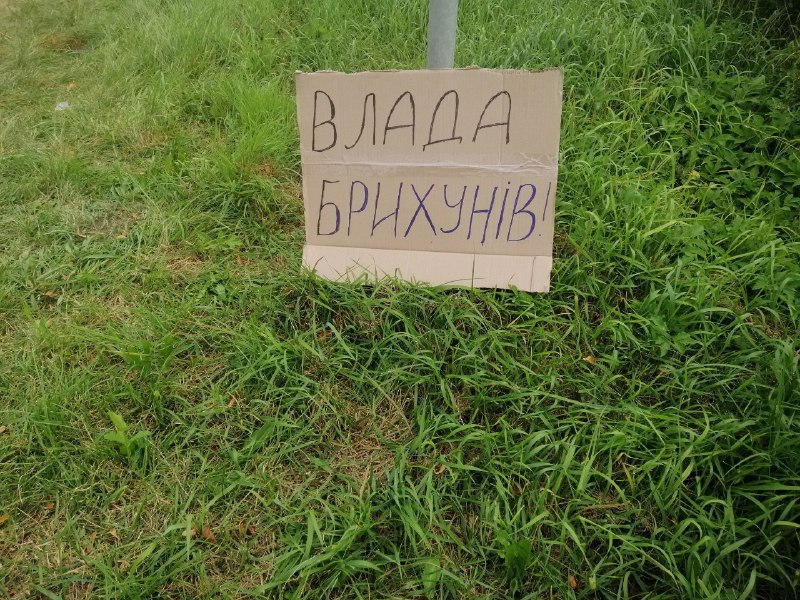 ВЛАДА
БРИХУНІВ!